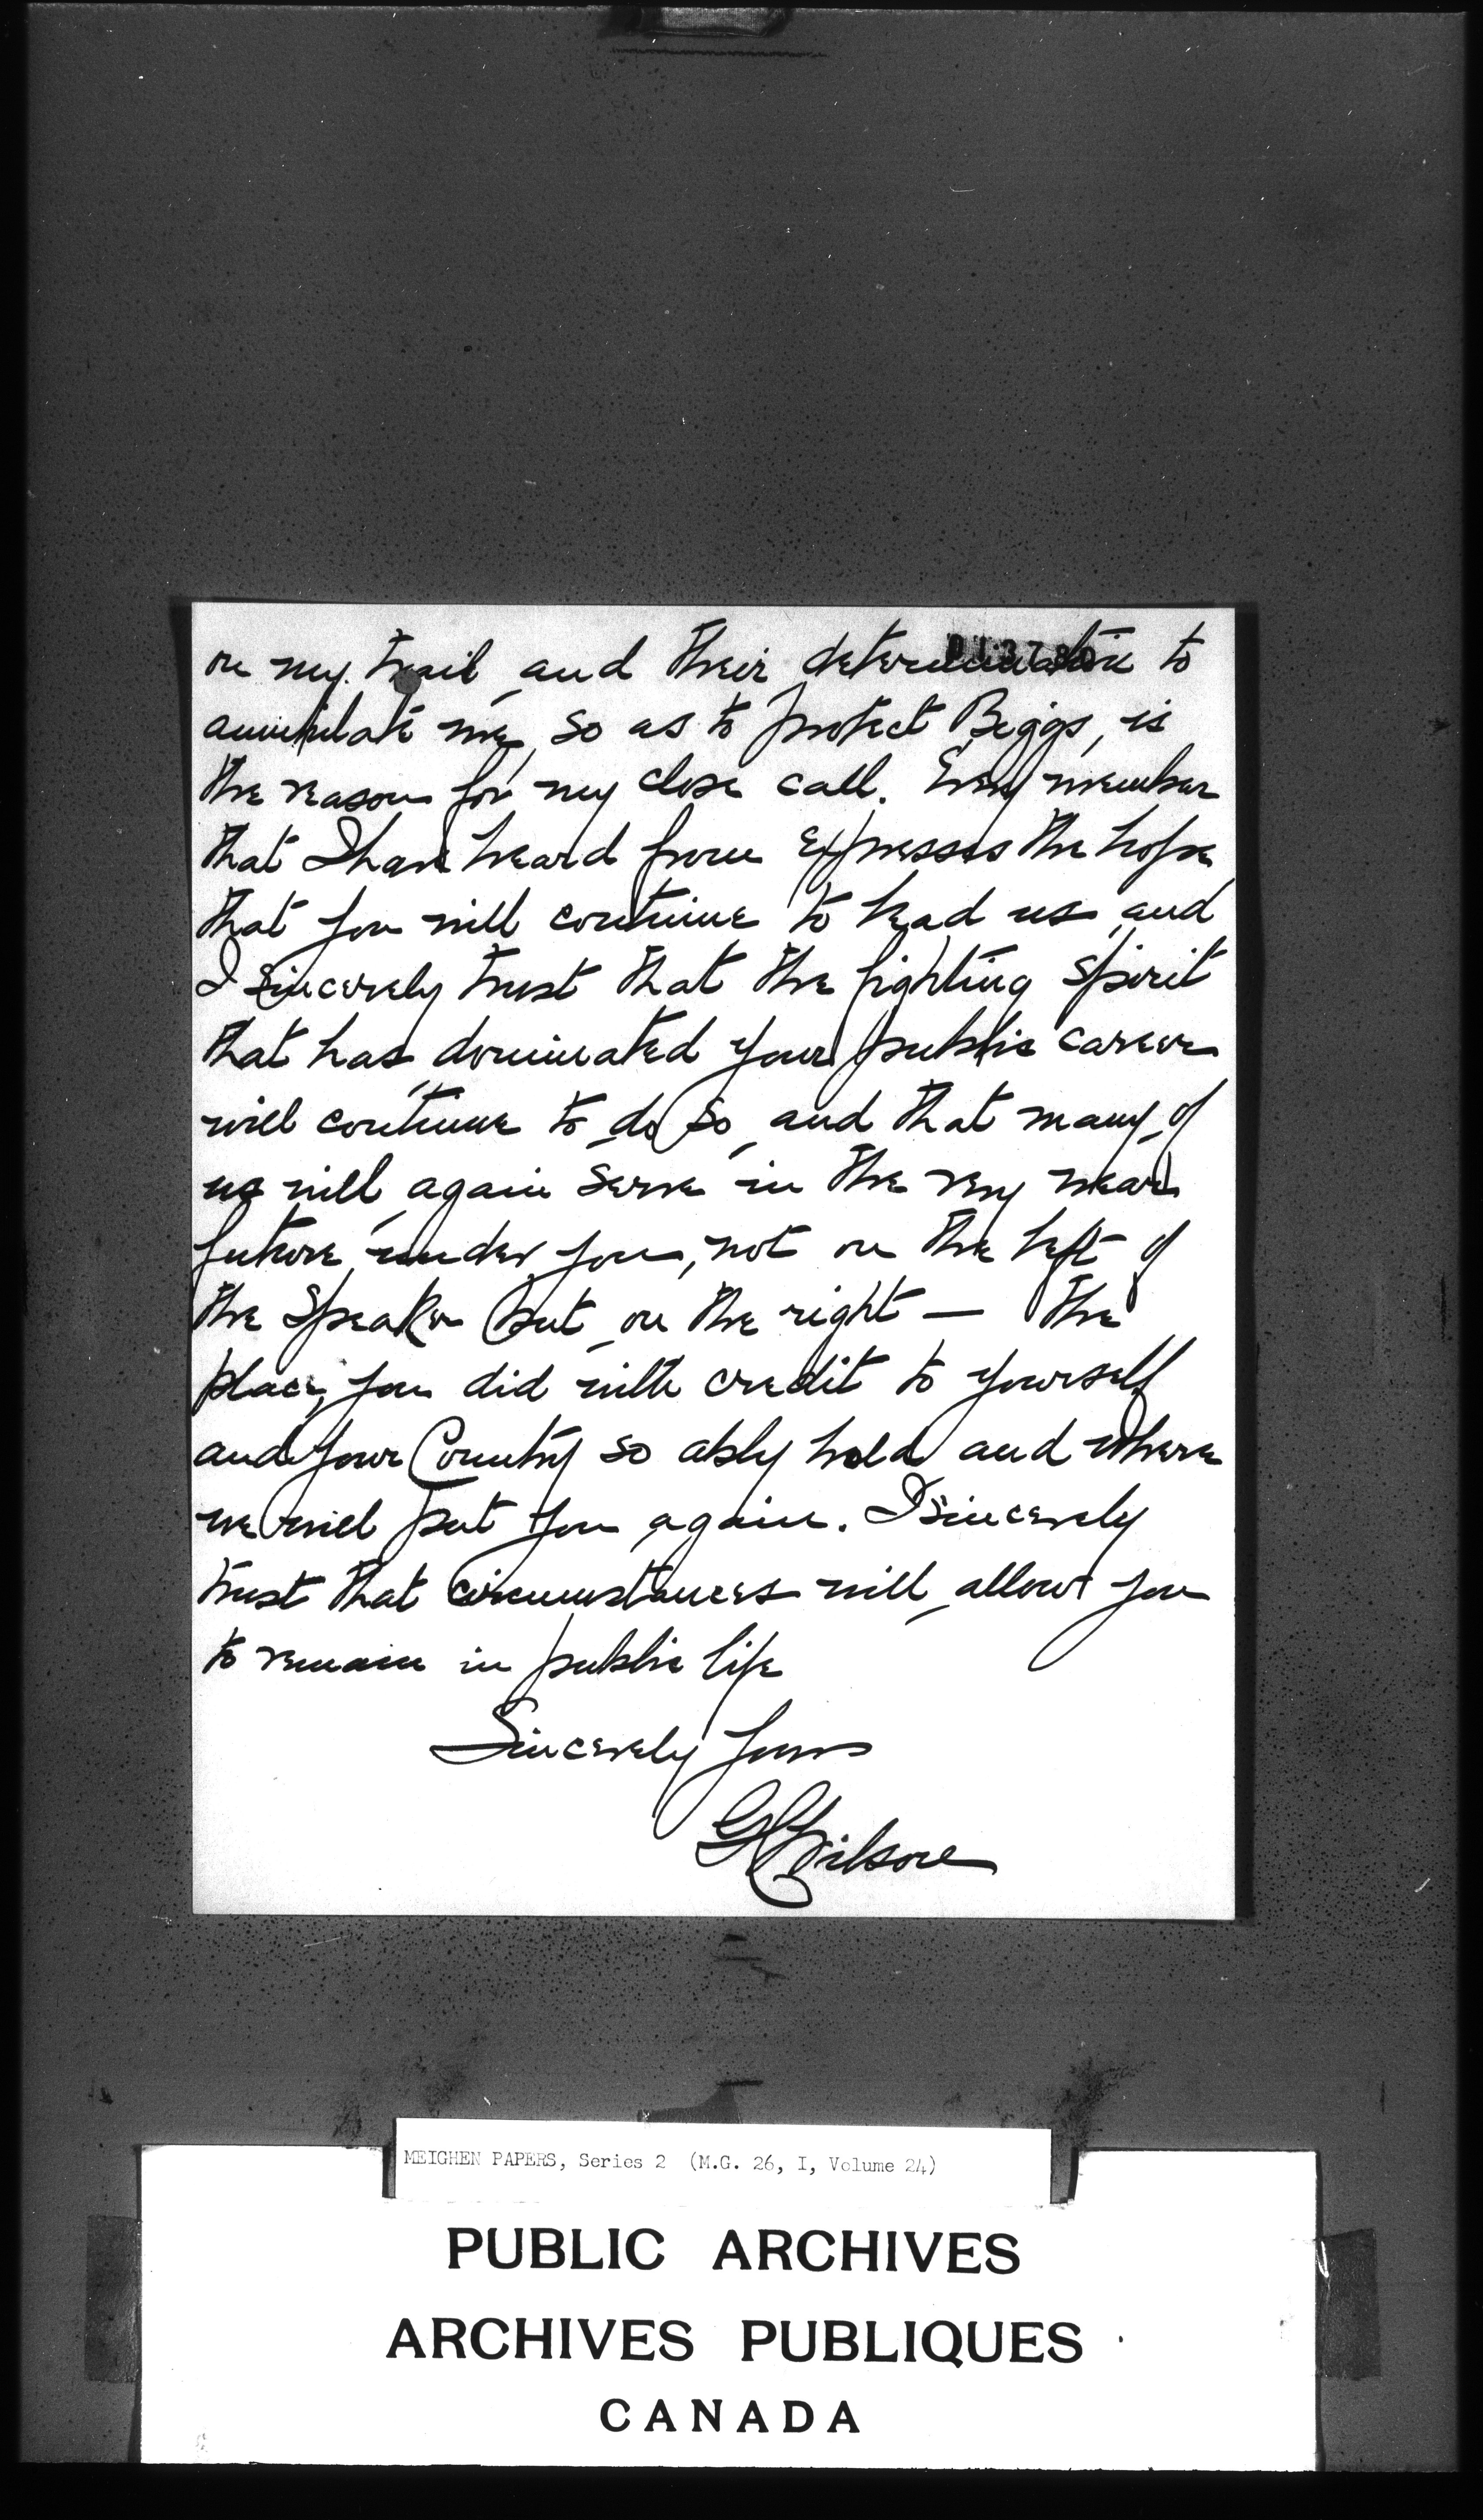 on my trail and their determination to
annihilate me, so as to protect Biggs, is
the reason for my close call. Every member
that I have heard from expresses the hope
that you will continue to lead us and
I sincerely trust that the fighting spirit
that has dominated your public career
will continue to do so and that many of
us will again serve in the very near
future under you, not on the left of
the Speaker but on the right — the
place, you did with credit to yourself
and your Country so ably hold and where
we will put you again. I sincerely
trust that circumstances will allow you
to remain in public life
Sincerely Yours
Wilson
MEIGHEN PAPERS, Series 2 (M.G. 26, I, Volume 24)
PUBLIC ARCHIVES
ARCHIVES PUBLIQUES
CANADA